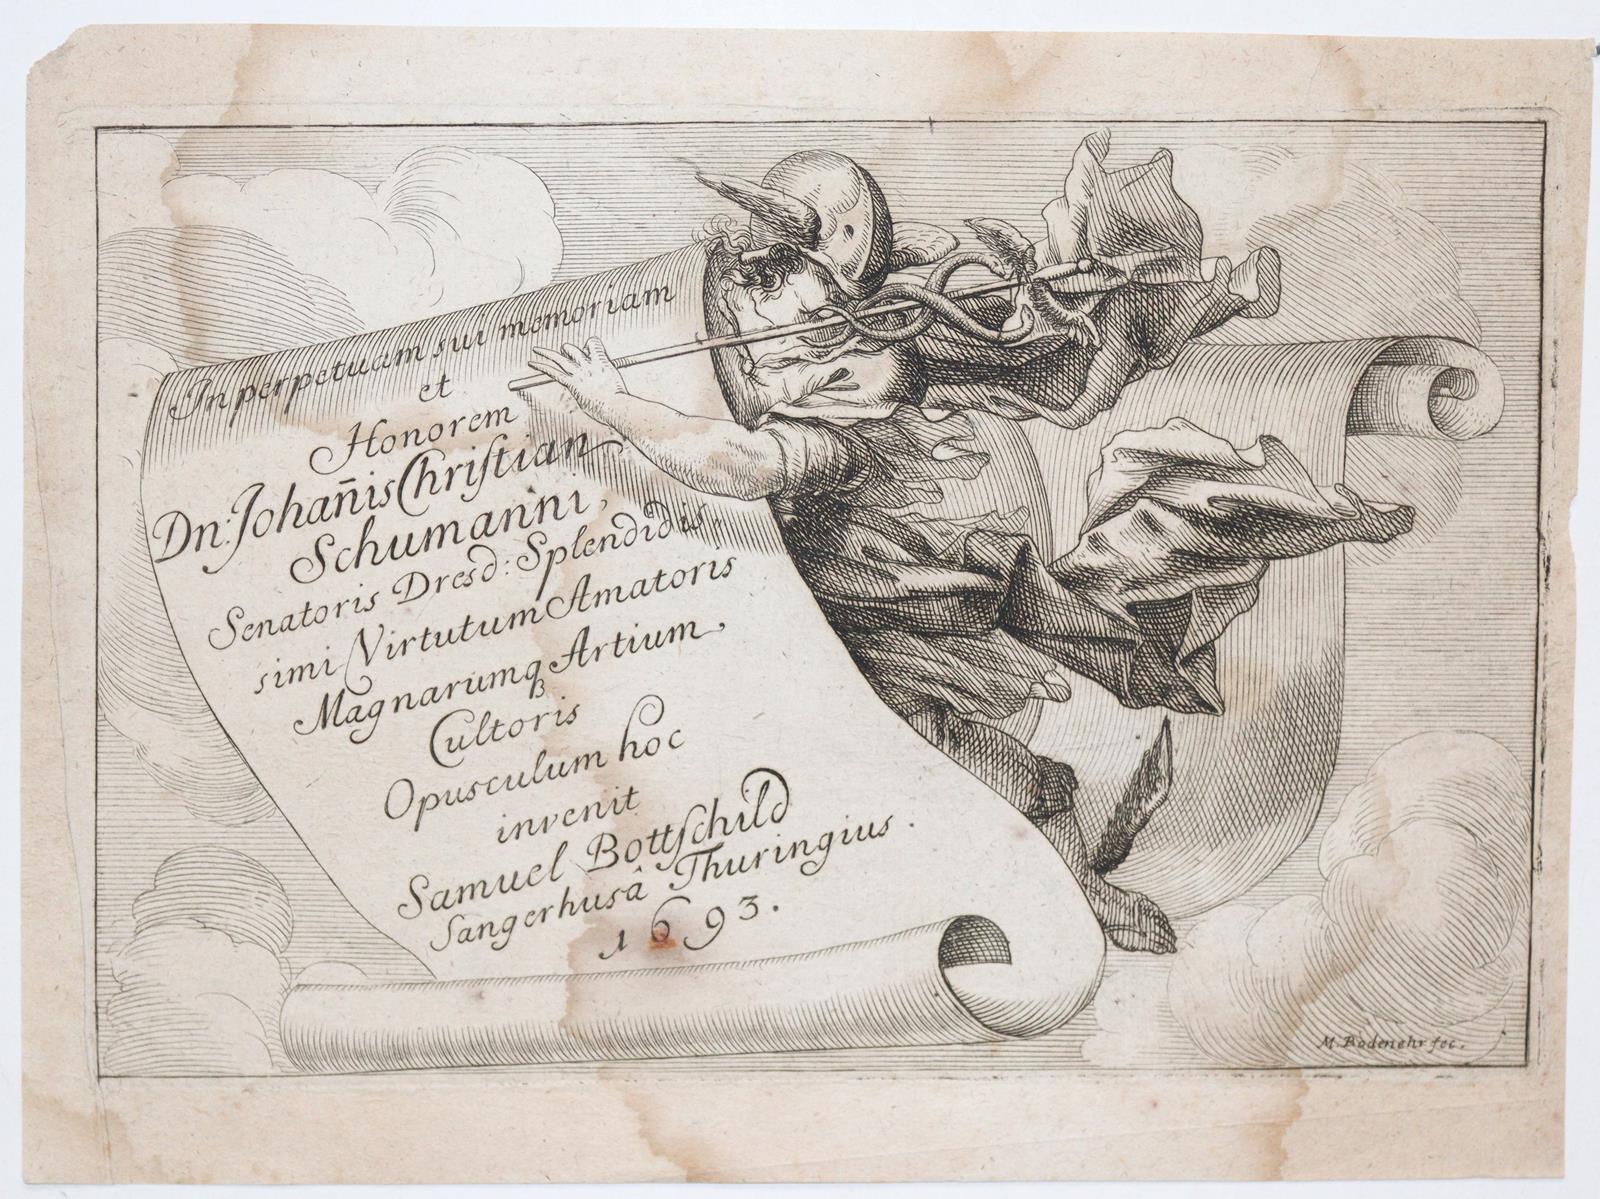 In perpetuam sui memoriam
et
Honorem
Dn: Johan̄is Christian
Schumanni,
Senatoris Dresd: Splendidis,
simi Virtutum Amatoris
Magnarumq₃ Artium,
Cultoris
Opusculum hoc
invenit
Samuel Bottſchild
Sangerhusâ Thuringius.
1693.
M. Bodenehr fec.